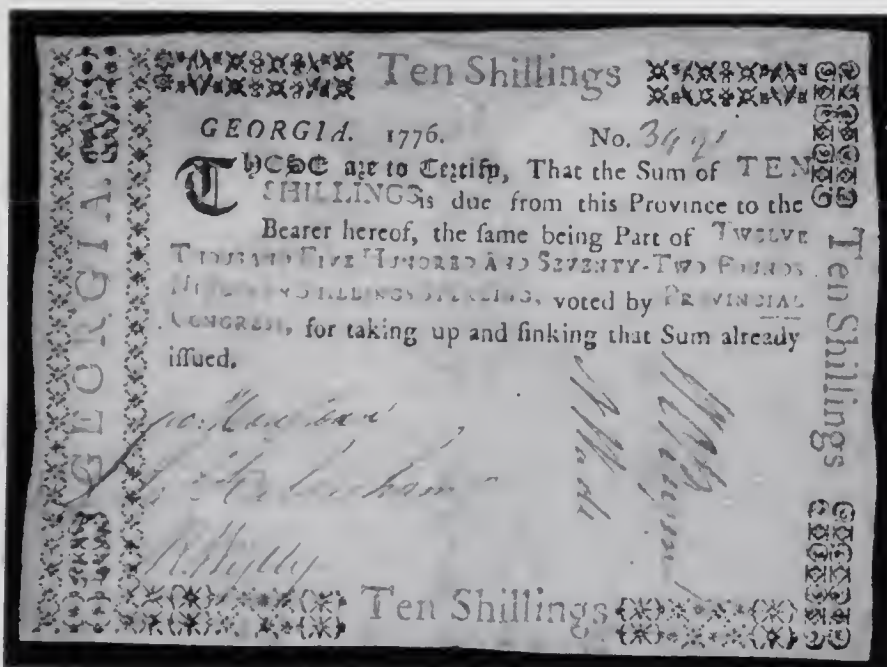 Ten Shillings
GEORGIA. 1776. No.
THESE are to Certify, That the Sum of TEN
SHILLINGS is due from this Province to the
Bearer hereof, the ſame being Part of TWELVE
THOUSAND FIVE HUNDRED AND SEVENTY-TWO POUNDS
SHILLINGS STERLING, voted by PROVINCIAL
CONGRESS, for taking up and ſinking that Sum already
iſſued.
Wylly
Ten Shillings
GEORGIA.
Ten Shillings